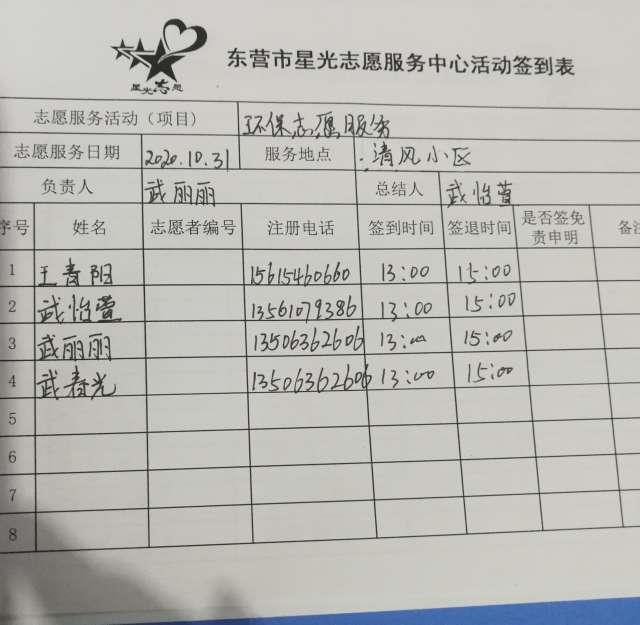 星光志愿
东营市星光志愿服务中心活动签到表
志愿服务活动（项目） 环保志愿服务
志愿服务日期 2020.10.31 服务地点 清风小区
负责人 武丽丽 总结人 武怡萱
序号 姓名 志愿者编号 注册电话 签到时间 签退时间 是否签免责申明 备注
1 王春阳 15615460660 13:00 15:00
2 武怡萱 13561079386 13:00 15:00
3 武丽丽 13506362606 13:00 15:00
4 武春光 13506362606 13:00 15:00
5
6
7
8